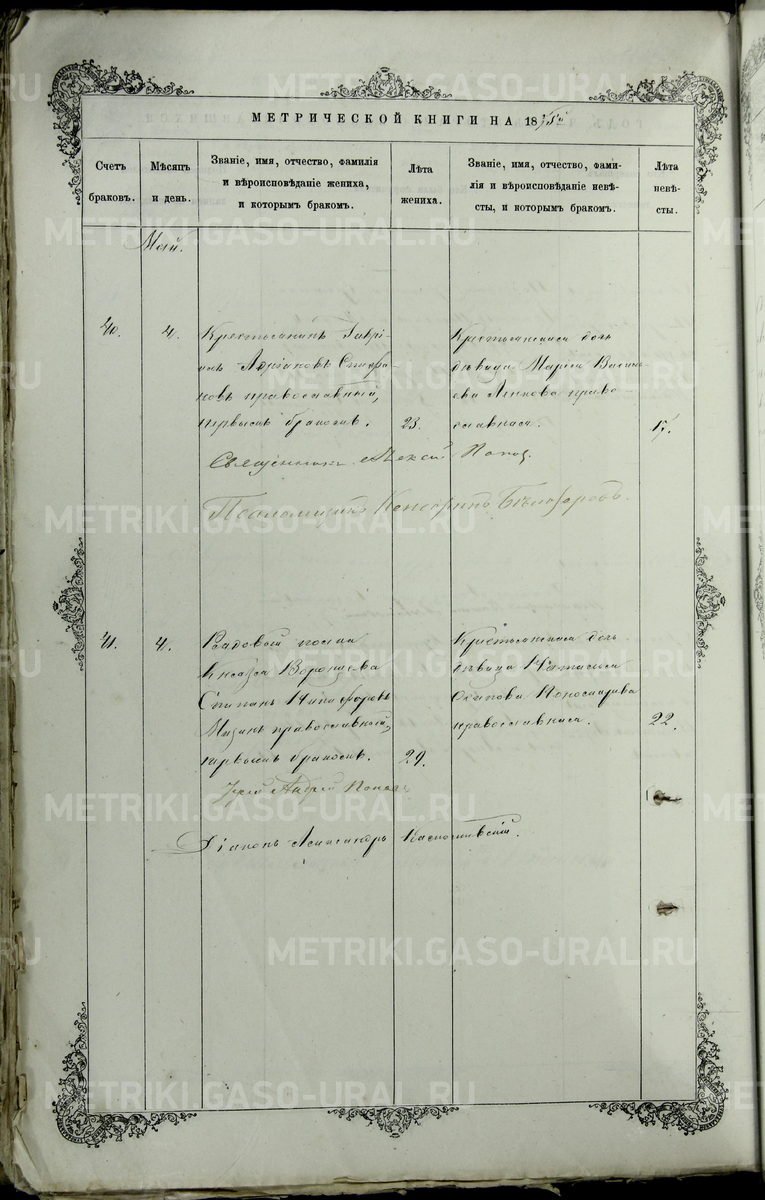 МЕТРИЧЕСКОЙ КНИГИ НА 1875й
Счетъ браковъ.
Мѣсяцъ и день.
Званіе, имя, отчество, фамилія
и вѣроисповѣданіе жениха,
и которымъ бракомъ.
Лѣта жениха.
Званіе, имя, отчество, фами-
лія и вѣроисповѣданіе невѣ-
сты, и которымъ бракомъ.
Лѣта невѣ-
сты.
Май.
40. 4.
Крестьянинъ Гаврі-
илъ Адріановъ
православный,
первымъ бракомъ. 23.
Крестьянская дочь
дѣвица Марія Василь-
ева право-
славная.
Священникъ Алексій Поповъ.
Псаломщикъ
41. 4.
Рядовой полка
Князя Воронцова
Степанъ Никифоровъ
православный,
первымъ бракомъ. 29.
Крестьянская дочь
дѣвица Наталья
Осипова
православная. 22.
Іерей Андрей Поповъ
Діаконъ Александръ
METRIKI.GASO-URAL.RU